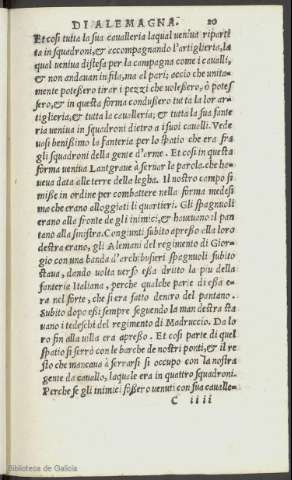 DI ALEMAGNA. 20
Et cosi tutta la sua cavalleria laqual veniua riparti
ta in squadroni, & accompagnando l'artiglieria, la
qual veniua distesa per la campagna come i caualli,
& non andauan in fila, ma al pari, accio che unita-
mente potessero tirar i pezzi che uolessero, ò potes
sero, & in questa forma condussero tutta la lor ar-
tiglieria, & tutta la caualleria; & tutta la sua fante
ria veniua in squadroni dietro a i suoi caualli. Vede
uasi benissimo la fanteria per lo spatio che era fra
gli squadroni della gente d'arme. Et cosi in questa
forma veniua Lantgraue à seruar la parola, che ha-
ueua data alle terre della legha. Il nostro campo si
misse in ordine per combattere nella forma medesi
ma che erano alloggiati li quartieri. Gli spagnuoli
erano alla fronte de gli inimici, & haueuano il pan
tano alla sinistra. Congiunti subito apresso alla loro
destra erano, gli Alemani del regimento di Gior-
gio con una banda d'archibusieri spagnuoli subito
staua, dando uolta verso essa dritto la piu della
fanteria Italiana, perche qualche parte di essa e-
ra nel forte, che si era fatto dentro del pantano.
Subito dopo essi sempre seguendo la man destra sta
uano i tedeschi del regimento di Madruccio. Da lo
ro fin alla villa era apresso. Et cosi parte di quel
spatio si serrò con le barche de nostri ponti, & il re
sto che mancaua à serrarsi si occupo con la nostra
gente da cauallo, laquale era in quattro squadroni.
Perche se gli inimici fossero venuti con sua caualle-
C iiii
Biblioteca de Galicia